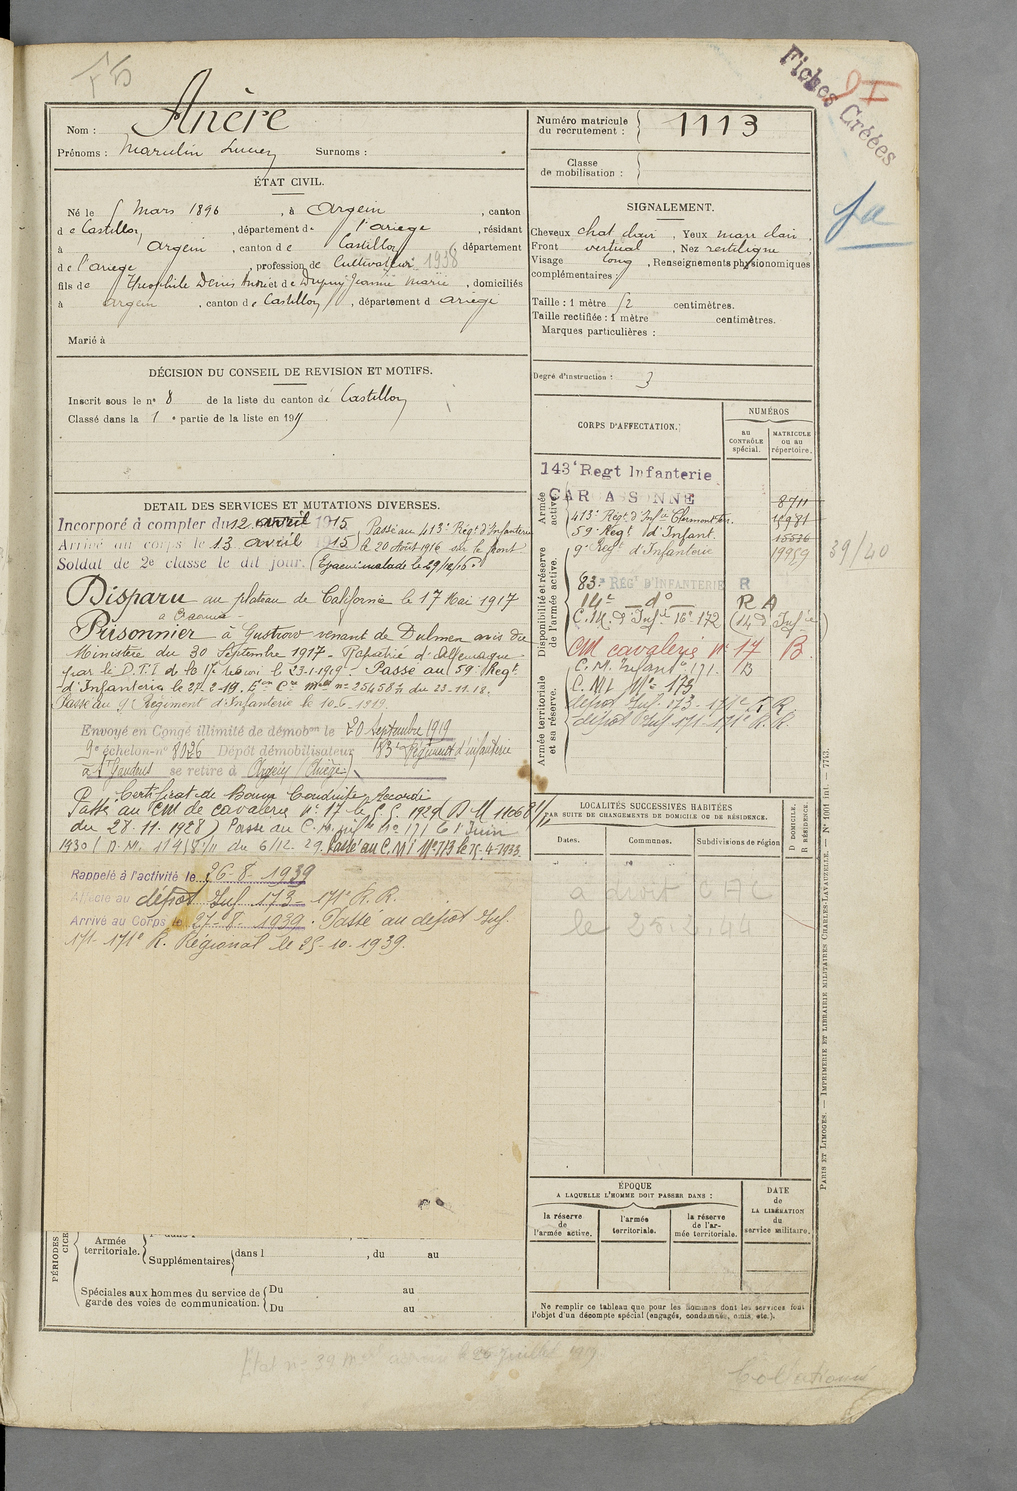 Fiches Créées
Nom : Anère
Prénoms : Marcelin Lucien Surnoms :
ÉTAT CIVIL.
Né le 5 mars 1896, à Argein, canton
de Castillon, département de l'ariège, résidant
à Argein, canton de Castillon, département
de l'ariège, profession de Cultivateur 1938
fils de Théophile Denis André et de Dupuy Jeanne Marie, domiciliés
à argein, canton de Castillon, département d ariège
Marié à
DÉCISION DU CONSEIL DE REVISION ET MOTIFS.
Inscrit sous le n° 8 de la liste du canton de Castillon
Classé dans la 1e partie de la liste en 191
DETAIL DES SERVICES ET MUTATIONS DIVERSES.
Incorporé à compter du 12 avril 1915
Arrivé au corps le 13 avril 1915
Soldat de 2e classe le dit jour.
Passé au 413e Régt d'Infanterie
le 20 Août 1916 sur le front
Evacué malade le 29/12/16
Disparu au plateau de Californie le 17 Mai 1917
à Craonne
Prisonnier à Gustrow venant de Dulmen avis du
Ministère du 30 Septembre 1917 - Rapatrié d'Allemagne
par le D.T.I de la 17e région le 23-1-1919 - Passé au 59e Régt
d'Infanterie le 27-2-19. n° 25458 du 23-11-18.
Passé au 9e Régiment d'Infanterie le 10-6-1919.
Envoyé en Congé illimité de démobon le 20 Septembre 1919
9e échelon-n° 8926 Dépôt démobilisateur 83e Régiment d'infanterie
à St Gaudens se retire à Argein (Ariège)
Certificat de Bonne Conduite Accordé
Passé au CM de cavalerie n° 17 le
du 28.11.1928) Passé au C.M. Infie n° 171 le 1 Juin
1930 (D.M. 11918/11 du 6/12.29. Passé au C.M.I N° 173 le 15-4-1933.
Rappelé à l'activité le 26-8-1939
Affecté au dépôt Inf. 173 - 171e R.R.
Arrivé au Corps le 27-8-1939. Passé au dépôt Inf.
171-171e R. Régional le 25-10-1939.
PÉRIODES
Armée territoriale.
Supplémentaires dans l , du au
Spéciales aux hommes du service de garde des voies de communication.
Du au
Du au
Numéro matricule du recrutement : 1113
Classe de mobilisation :
SIGNALEMENT.
Cheveux chat clair, Yeux marr clair,
Front vertical, Nez rectiligne
Visage long, Renseignements physionomiques
complémentaires :
Taille : 1 mètre 52 centimètres.
Taille rectifiée : 1 mètre centimètres.
Marques particulières :
Degré d'instruction : 3
CORPS D'AFFECTATION.
NUMÉROS
AU CONTRÔLE spécial.
MATRICULE ou au répertoire.
Armée active.
143e Regt Infanterie
CARCASSONNE 8711
413e Régt d'Infie Clermont Fer.
59e Régt d'Infant. 15536
9e Régt d'Infanterie 19989
39/40
Disponibilité et réserve de l'armée active.
83e RÉGt D'INFANTERIE R
14e - do - R A
C.M. d'Infie 16e 172 (14e d'Infie)
CM cavalerie n° 17 B
C.M. Infante 171. B
C.M.I N° 173
dépôt Inf. 173 - 171e R.R.
dépôt Inf. 171 - 171e R.R.
Armée territoriale et sa réserve.
LOCALITÉS SUCCESSIVES HABITÉES
PAR SUITE DE CHANGEMENTS DE DOMICILE OU DE RÉSIDENCE.
Dates. Communes. Subdivisions de région
D DOMICILE. R RÉSIDENCE.
a droit CAC
le 25.2.44
ÉPOQUE
A LAQUELLE L'HOMME DOIT PASSER DANS :
la réserve de l'armée active.
l'armée territoriale.
la réserve de l'armée territoriale.
DATE de LA LIBÉRATION du service militaire.
Ne remplir ce tableau que pour les hommes dont les services font
l'objet d'un décompte spécial (engagés, condamnés, omis, etc.).
PARIS ET LIMOGES. — IMPRIMERIE ET LIBRAIRIE MILITAIRES CHARLES-LAVAUZELLE. — N° 1001 int. — 7743.
Collationné